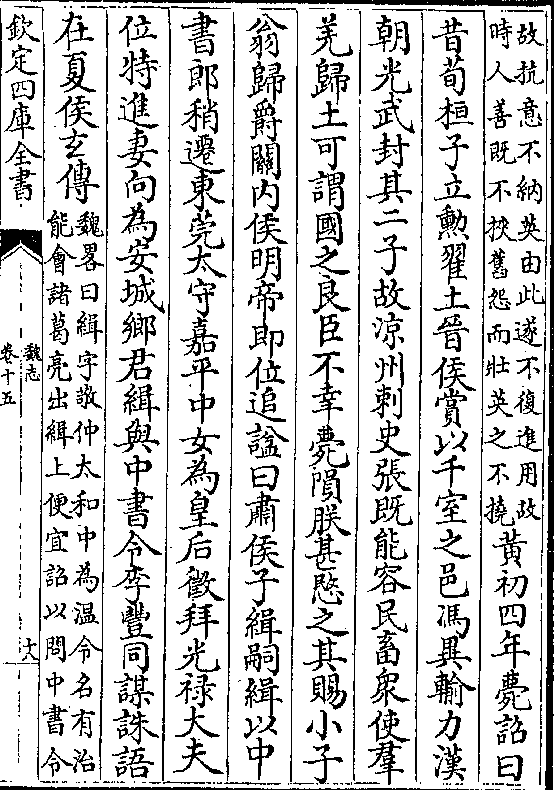 故抗意不納英由此遂不復進用故
時人善既不挾舊怨而壯英之不撓
黃初四年薨詔曰
昔荀桓子立勲翟土晉侯賞以千室之邑馮異輸力漢
朝光武封其二子故涼州刺史張既能容民畜衆使羣
羌歸土可謂國之良臣不幸薨隕朕甚愍之其賜小子
翁歸爵關内侯明帝即位追諡曰肅侯子緝嗣緝以中
書郎稍遷東莞太守嘉平中女為皇后徵拜光禄大夫
位特進妻向為安城鄉君緝與中書令李豐同謀誅語
在夏侯玄傳
魏畧曰緝字敬仲太和中為温令名有治
能會諸葛亮出緝上便宜詔以問中書令
欽定四庫全書
魏志
卷十五
十八